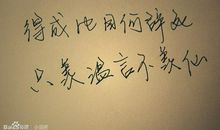 得成比目何辞死
只羡温言不羡仙